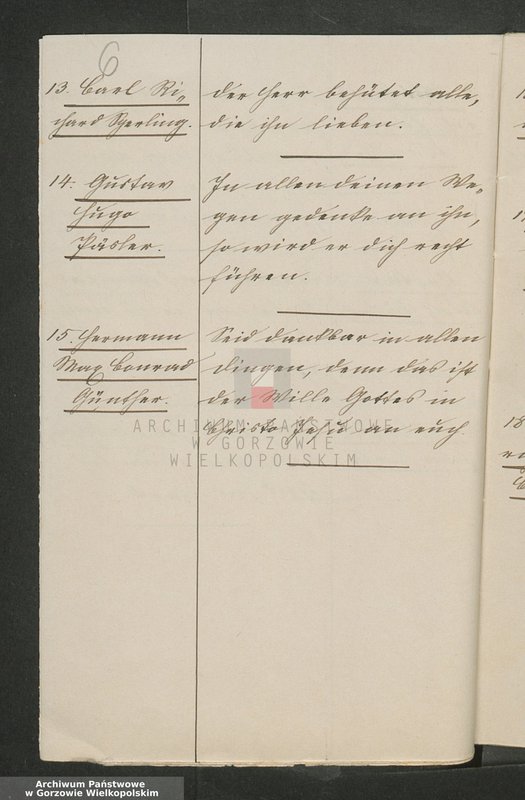 6
13. Carl Ri-
chard Sperling.
Der Herr behütet alle,
die ihn lieben.
14. Gustav
Hugo
Päsler.
In allen deinen We-
gen gedenke an ihn,
so wird er dich recht
führen.
15. Hermann
Max Conrad
Günther.
Seid dankbar in allen
Dingen, denn das ist
der Wille Gottes in
Christo Jesu an euch
ARCHIWUM PAŃSTWOWE
W GORZOWIE
WIELKOPOLSKIM
18
Archiwum Państwowe
w Gorzowie Wielkopolskim